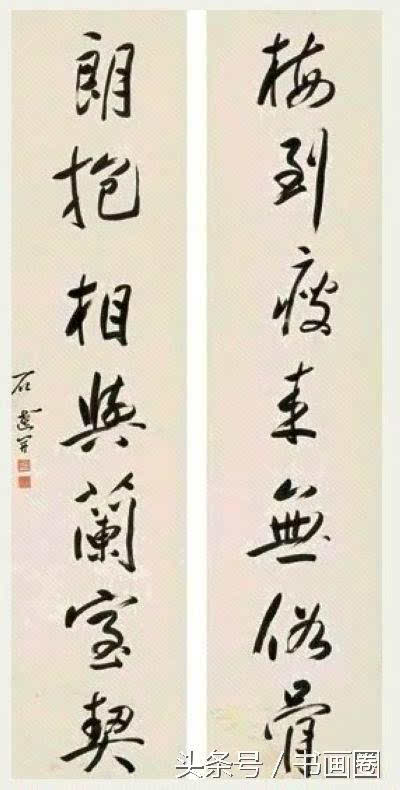 梅到瘦来無俗骨
朗抱相與蘭室契
石達开
头条号 / 书画圈